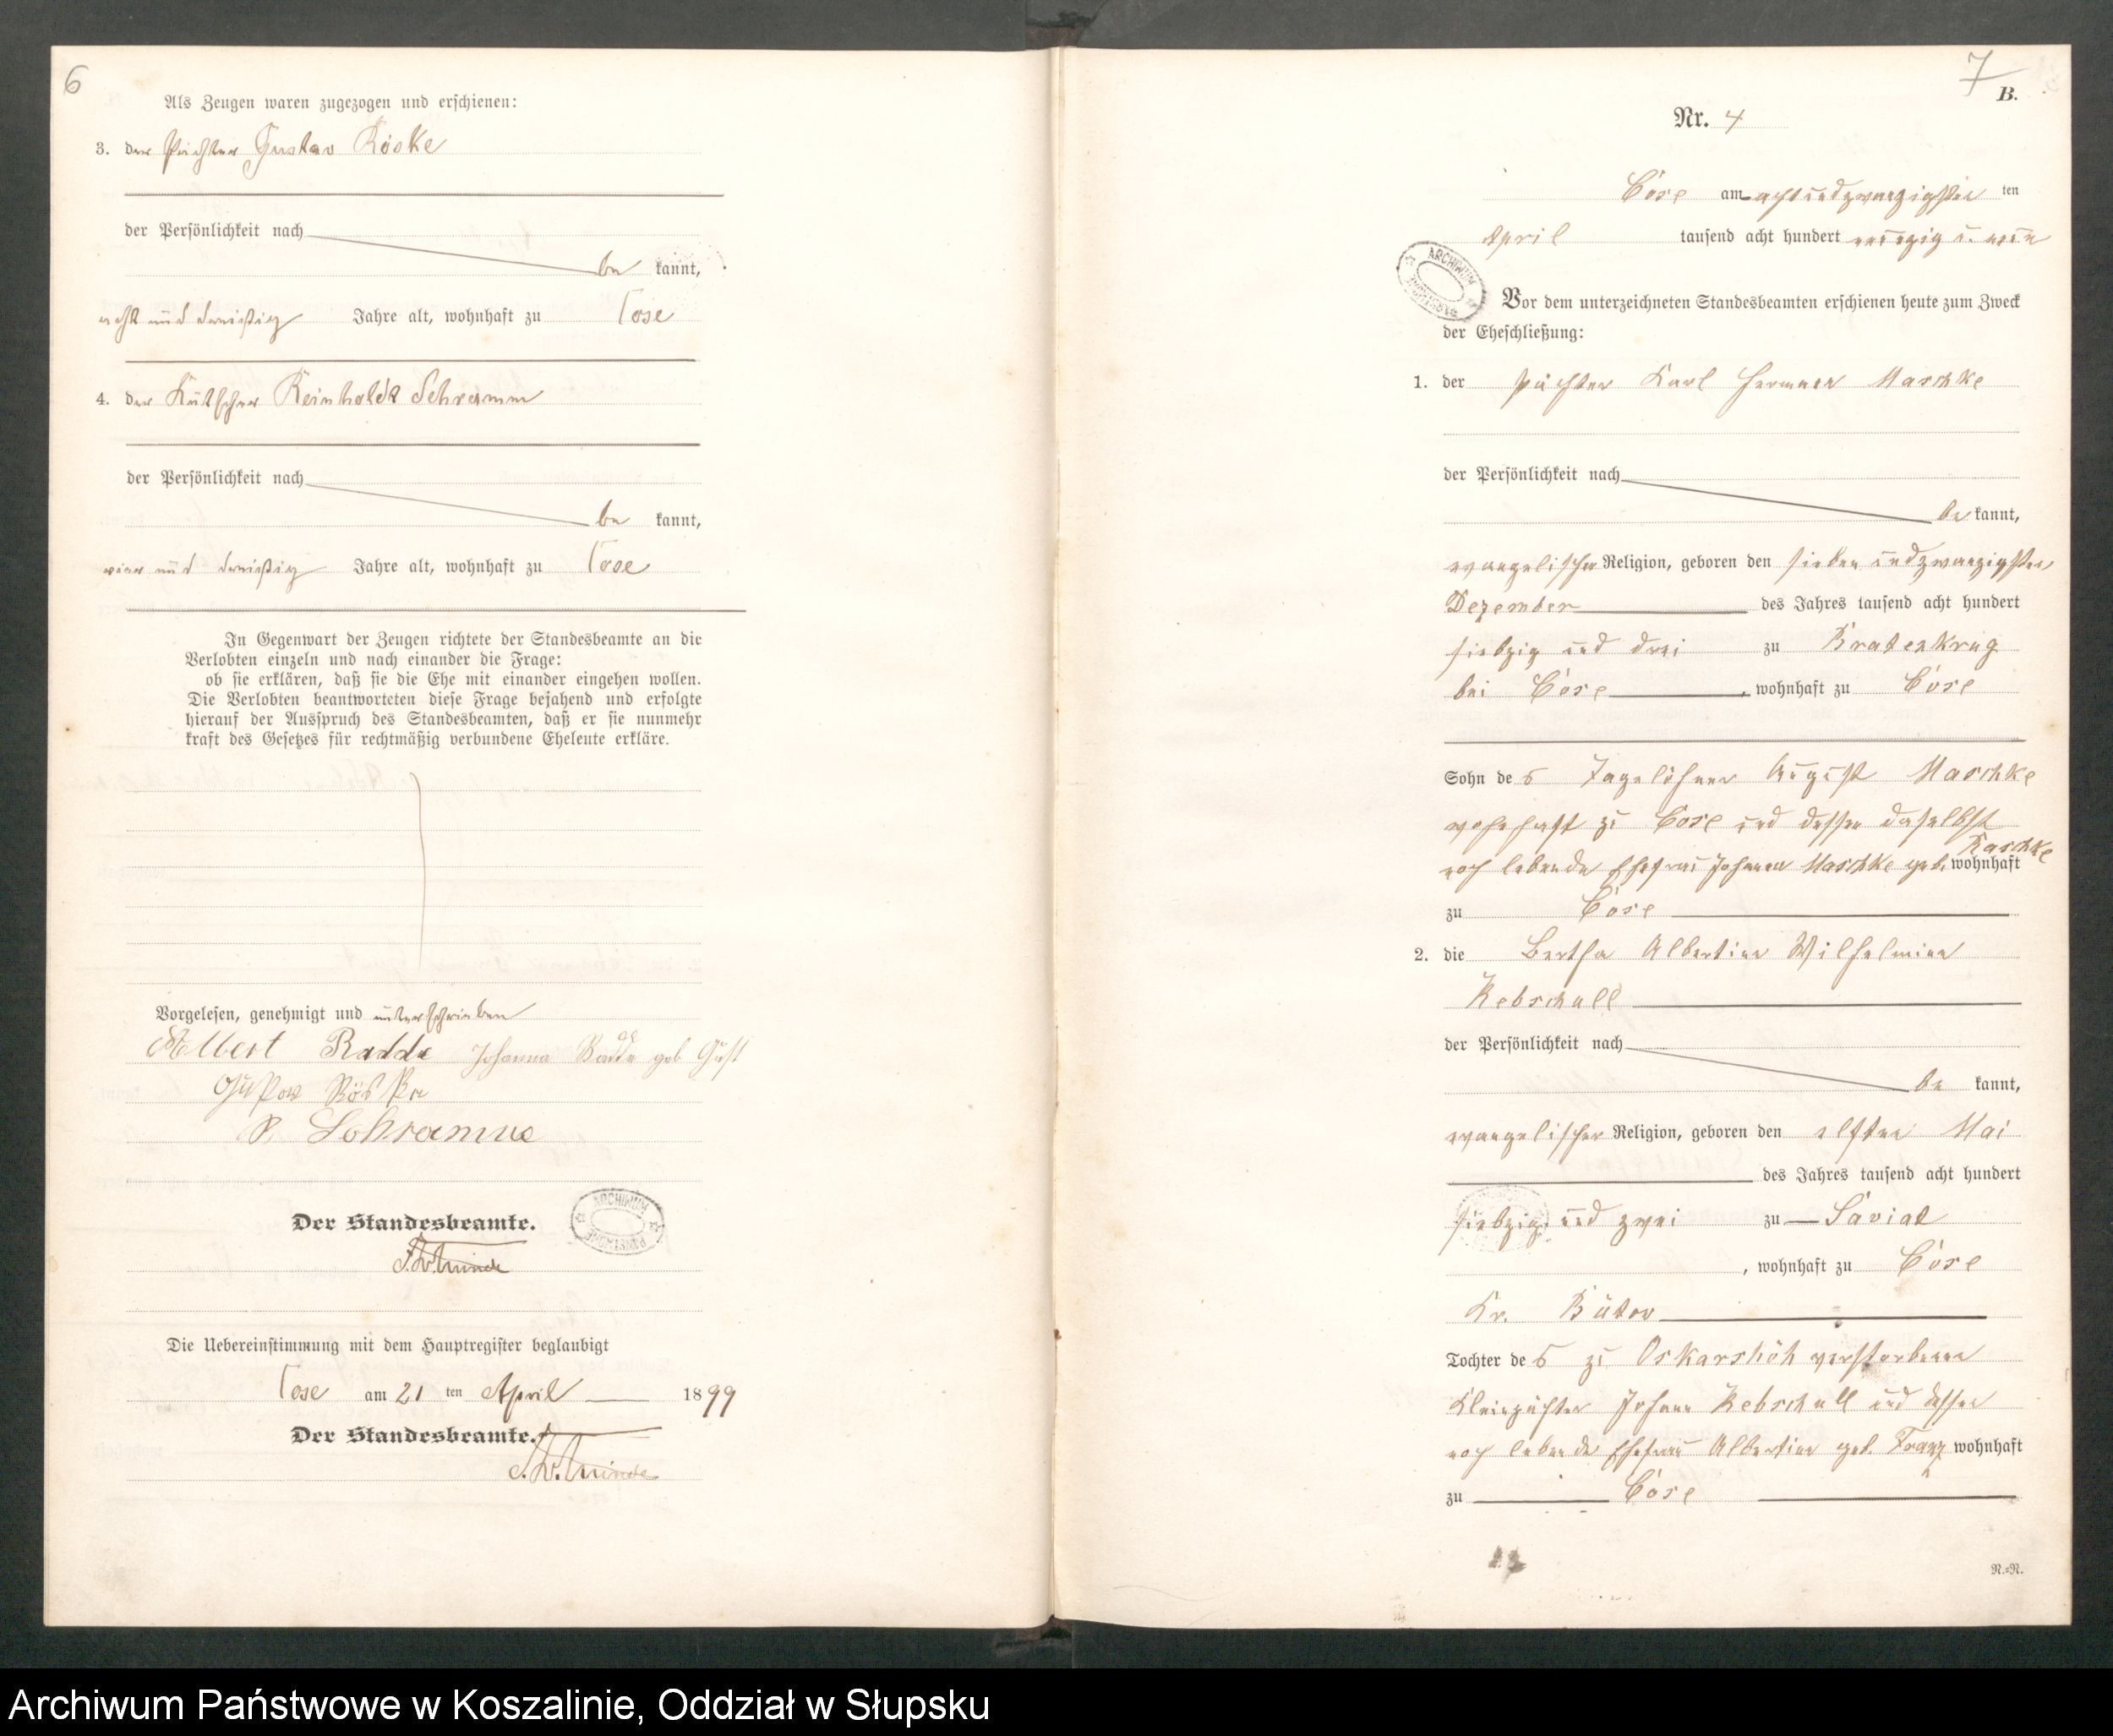 6
Als Zeugen waren zugezogen und erschienen:
3. der Pächter Gustav Röske
der Persönlichkeit nach
be kannt,
acht und dreißig Jahre alt, wohnhaft zu Cose
4. der Kutscher Reinholdt Schramm
der Persönlichkeit nach
be kannt,
vier und dreißig Jahre alt, wohnhaft zu Cose
In Gegenwart der Zeugen richtete der Standesbeamte an die
Verlobten einzeln und nach einander die Frage:
ob sie erklären, daß sie die Ehe mit einander eingehen wollen.
Die Verlobten beantworteten diese Frage bejahend und erfolgte
hierauf der Ausspruch des Standesbeamten, daß er sie nunmehr
kraft des Gesetzes für rechtmäßig verbundene Eheleute erkläre.
Vorgelesen, genehmigt und unterschrieben
Albert Radde Johanna Radde geb Gust
Gustav Röske
R. Schramm
Der Standesbeamte.
ARCHIWUM PAŃSTWOWE
Die Uebereinstimmung mit dem Hauptregister beglaubigt
Cose am 21 ten April 1899
Der Standesbeamte.
7
B.
Nr. 4
Cose am achtundzwanzigsten ten
April tausend acht hundert neunzig u. neun
ARCHIWUM PAŃSTWOWE
Vor dem unterzeichneten Standesbeamten erschienen heute zum Zweck
der Eheschließung:
1. der Pächter Karl Hermann Maschke
der Persönlichkeit nach
be kannt,
evangelischer Religion, geboren den sieben undzwanzigsten
Dezember des Jahres tausend acht hundert
siebzig und drei zu Bratenkrug
bei Cose, wohnhaft zu Cose
Sohn des Tagelöhner August Maschke
wohnhaft zu Cose und dessen daselbst
noch lebende Ehefrau Johanna Maschke geb. Raschke wohnhaft
zu Cose
2. die Bertha Albertine Wilhelmine
Rebschull
der Persönlichkeit nach
be kannt,
evangelischer Religion, geboren den elften Mai
des Jahres tausend acht hundert
siebzig und zwei zu Saviat
, wohnhaft zu Cose
Kr. Bütow
Tochter des zu Oskarshöh verstorbenen
Kleinpächter Johann Rebschull und dessen
noch lebende Ehefrau Albertine geb. Franz wohnhaft
zu Cose
N.=N.
Archiwum Państwowe w Koszalinie, Oddział w Słupsku